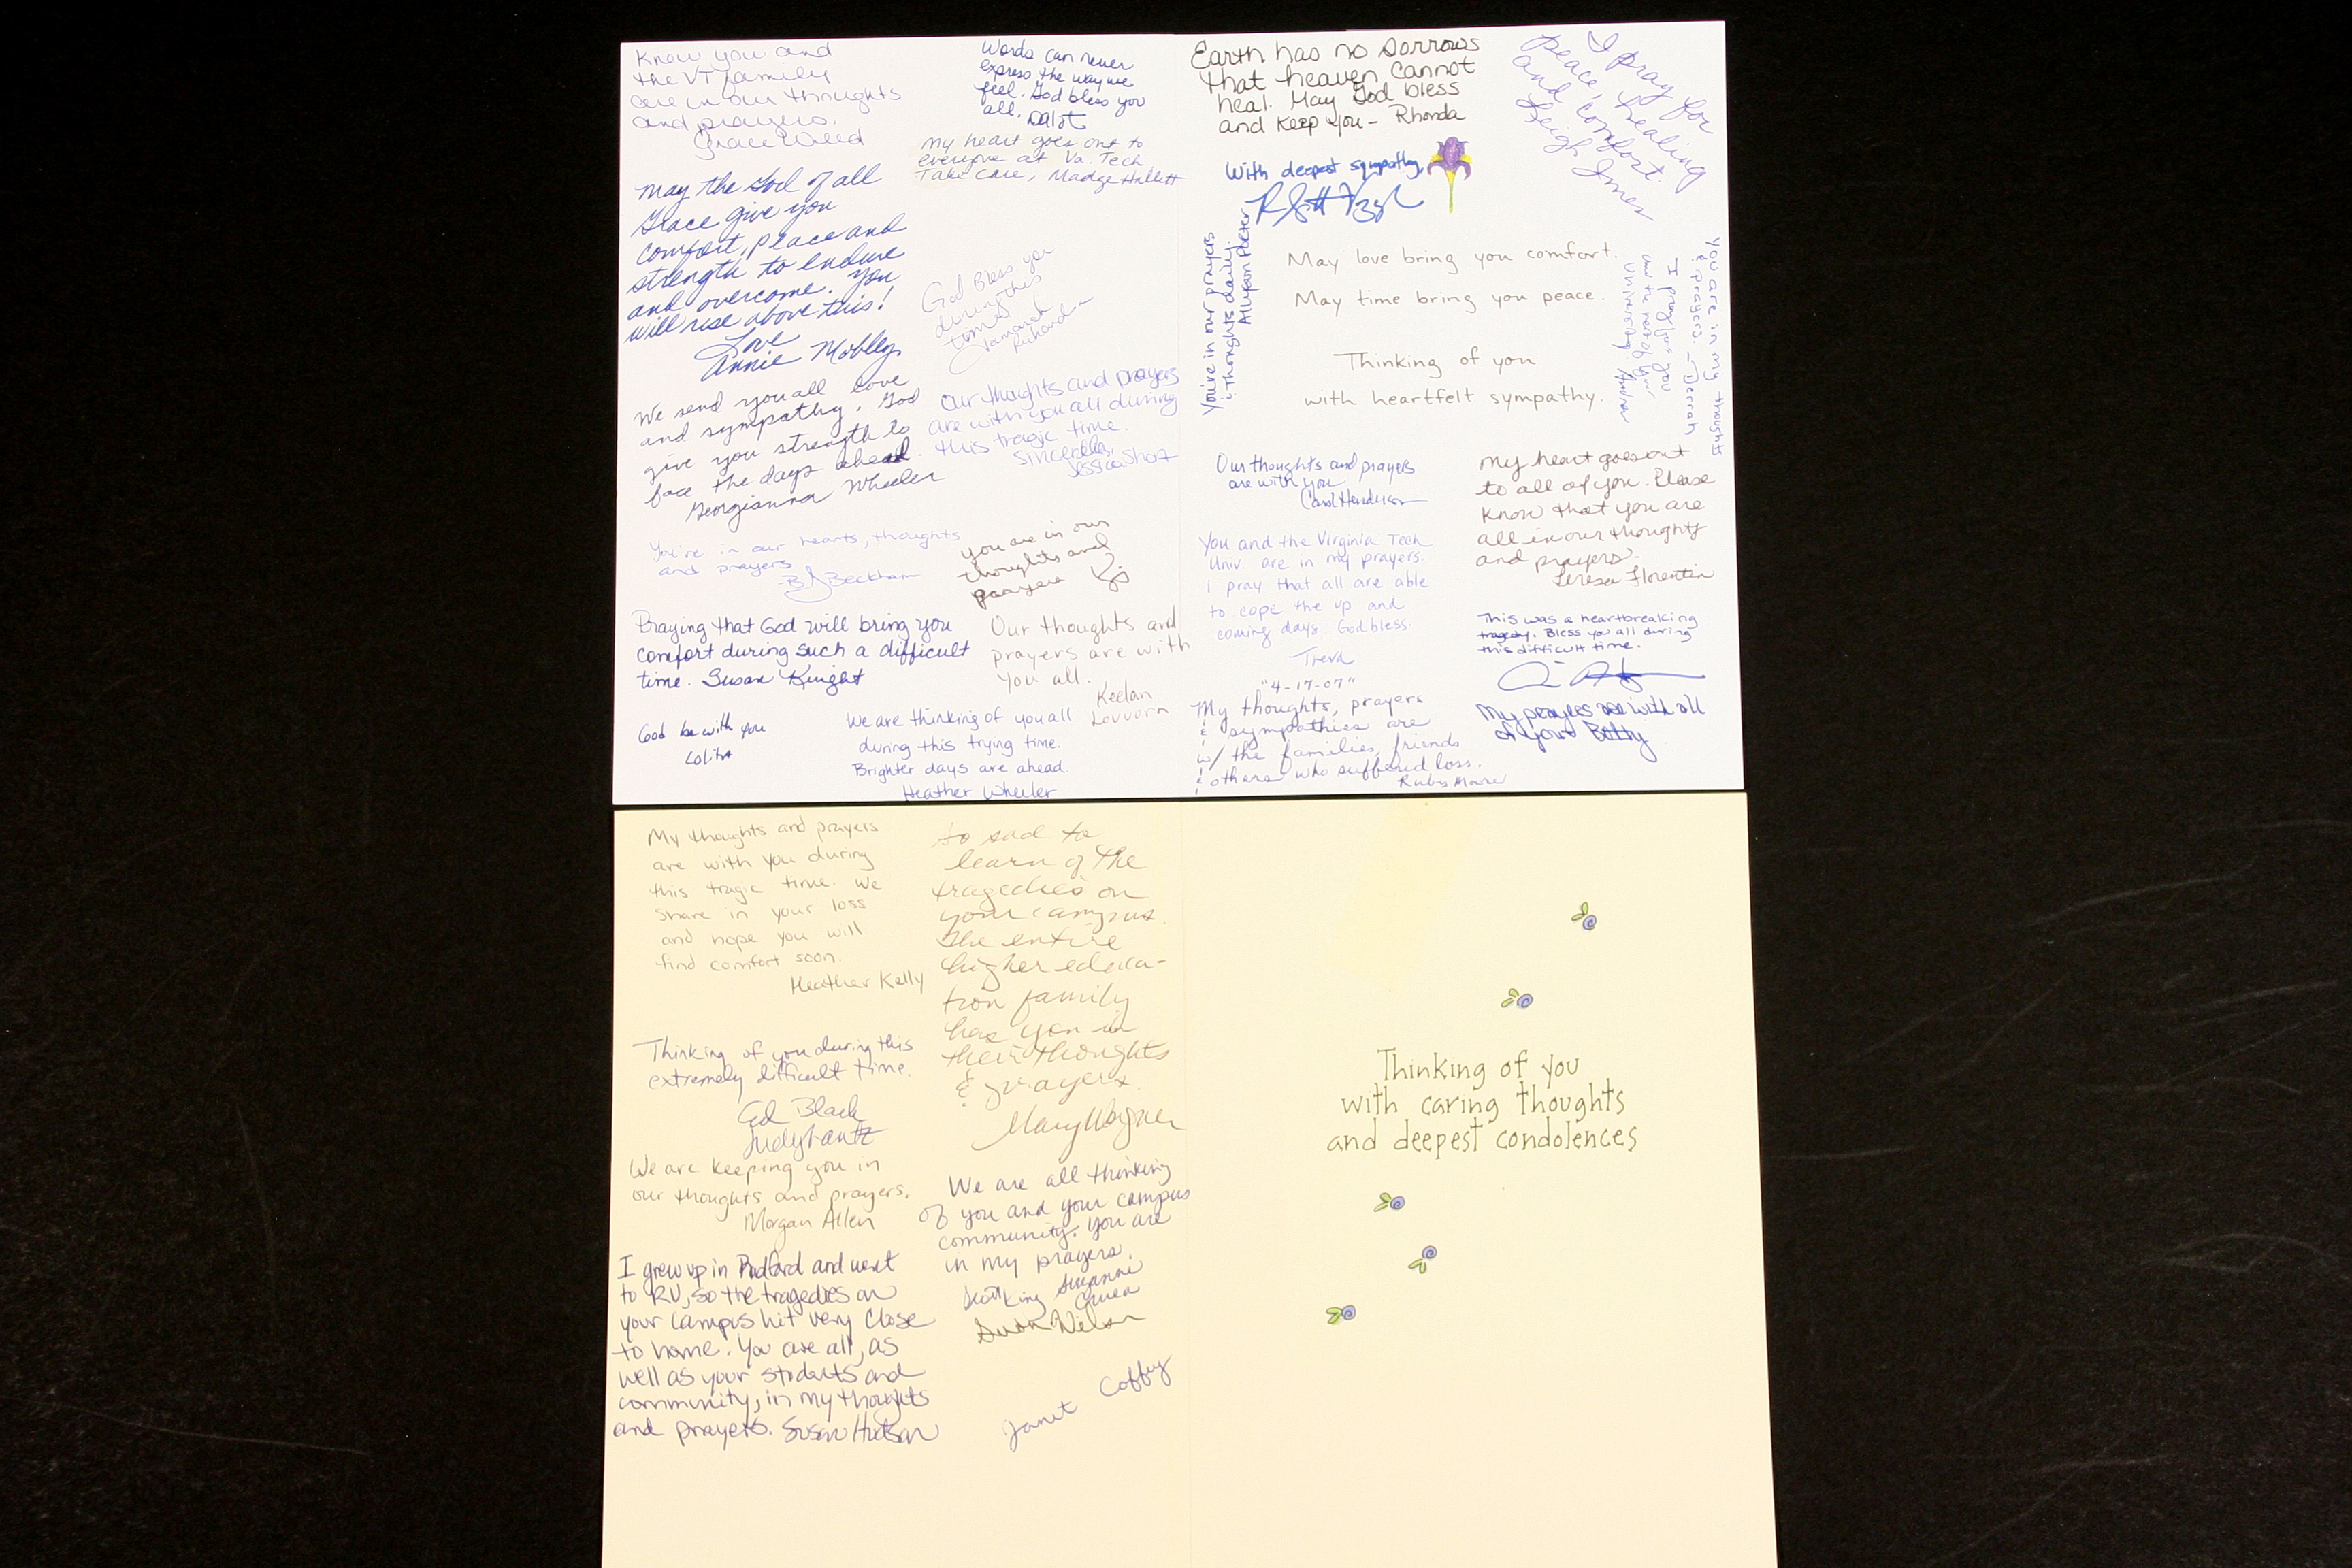 Know you and
the VT family
are in our thoughts
and prayers.
Grace Weed
Words can never
express the way we
feel. God bless you
all.
My heart goes out to
everyone at Va. Tech
Take care, Madge Hallett
May the God of all
Grace give you
comfort, peace and
strength to endure
and overcome. You
will rise above this!
Love
Annie Mobley
God Bless you
during this
time
Richardson
We send you all love
and sympathy. God
give you strength to
face the days ahead.
Georgianna Wheeler
Our thoughts and prayers
are with you all during
this tragic time.
Sincerely,
Jessica Short
You're in our hearts, thoughts
and prayers
BJ Beckham
You are in our
thoughts and
prayers
Praying that God will bring you
comfort during such a difficult
time. Susan Knight
Our thoughts and
prayers are with
you all.
Keelan
Lovvorn
God be with you
Lolita
We are thinking of you all
during this trying time.
Brighter days are ahead.
Heather Wheeler
Earth has no sorrows
that heaven cannot
heal. May God bless
and keep you - Rhonda
I pray for
peace, healing
and comfort.
Leigh Jones
With deepest sympathy,
You're in our prayers
& thoughts daily.
Allyson Peter
May love bring you comfort.
May time bring you peace.
Thinking of you
with heartfelt sympathy.
You are in my thoughts
& prayers. - Derrah
I pray for you
and the rest of your
University. Andrea
Our thoughts and prayers
are with you
Carol Henderson
My heart goes out
to all of you. Please
know that you are
all in our thoughts
and prayers.
Teresa Florentin
You and the Virginia Tech
Univ. are in my prayers.
I pray that all are able
to cope the up and
coming days. God bless.
Treva
"4-17-07"
This was a heartbreaking
tragedy. Bless you all during
this difficult time.
My thoughts, prayers
& sympathies are
w/ the families, friends
& others who suffered loss.
Ruby Moore
My prayers are with all
of you Betty
My thoughts and prayers
are with you during
this tragic time. We
share in your loss
and hope you will
find comfort soon.
Heather Kelly
So sad to
learn of the
tragedies on
your campus.
The entire
higher educa-
tion family
has you in
their thoughts
& prayers.
Mary Wagner
Thinking of you during this
extremely difficult time.
Ed Black
Judy Lantz
We are keeping you in
our thoughts and prayers.
Morgan Allen
We are all thinking
of you and your campus
community. You are
in my prayers.
Scott King Suzanne
Green
Susan Nelson
I grew up in Radford and went
to RU, so the tragedies on
your campus hit very close
to home. You are all, as
well as your students and
community, in my thoughts
and prayers. Susan Hudson
Janet Coffey
Thinking of you
with caring thoughts
and deepest condolences